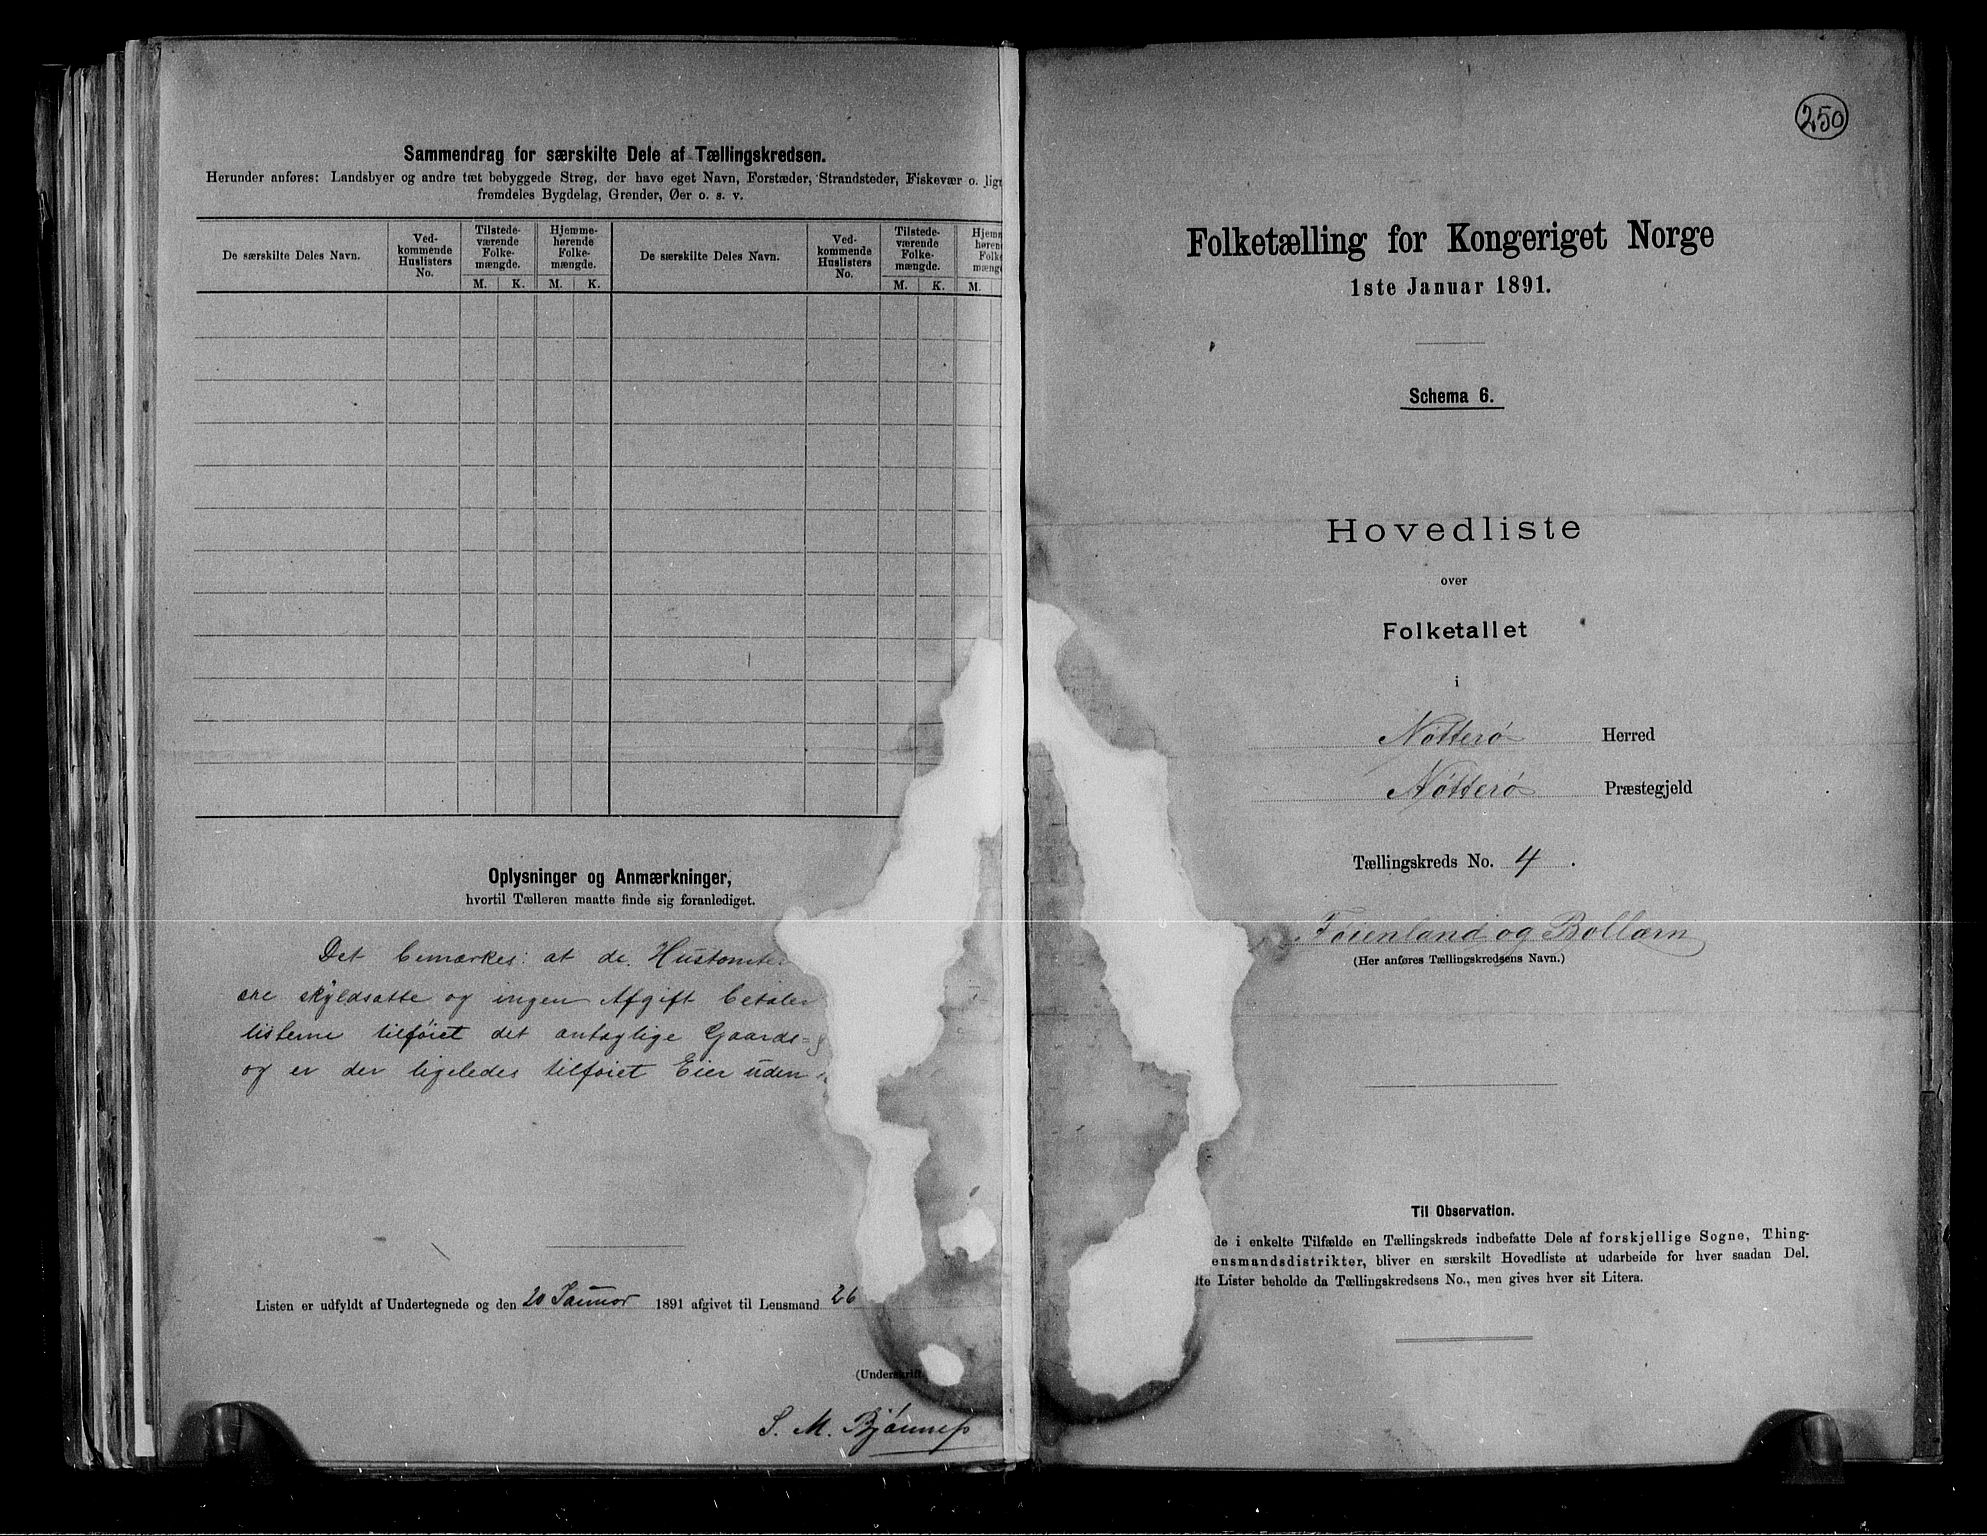 Sammendrag for særskilte Dele af Tællingskredsen.
Herunder anføres: Landsbyer og andre tæt bebyggede Strøg, der have eget Navn, Forstæder, Strandsteder, Fiskevær o. lign
fremdeles Bygdelag, Grender, Øer o. s. v.
De særskilte Deles Navn.
Ved-
kommende
Huslisters
No.
Tilstede-
værende
Folke-
mængde.
Hjemme-
hørende
Folke-
mængde.
De særskilte Deles Navn.
Ved-
kommende
Huslisters
No.
Tilstede-
værende
Folke-
mængde.
Hjem
høren
Folke
mæng
M. K. M. K. M. K. M.
Oplysninger og Anmærkninger,
hvortil Tælleren maatte finde sig foranlediget.
Det bemærkes: at de
ere skyldsatte og ingen Afgift betaler
listerne tilføiet det antaglige Gaards=
og er der ligeledes tilføiet Eier uden
Listen er udfyldt af Undertegnede og den 20 Januar 1891 afgivet til Lensmand 26
(Underskrift.
S. M. Bjønnes
250
Folketælling for Kongeriget Norge
1ste Januar 1891.
Schema 6.
Hovedliste
over
Folketallet
i
Nøtterø Herred
Nøtterø Præstegjeld
Tællingskreds No. 4.
Føienland og Bollærn
(Her anføres Tællingskredsens Navn.)
Til Observation.
de i enkelte Tilfælde en Tællingskreds indbefatte Dele af forskjellige Sogne, Thing-
ensmandsdistrikter, bliver en særskilt Hovedliste at udarbeide for hver saadan Del.
lte Lister beholde da Tællingskredsens No., men gives hver sit Litera.